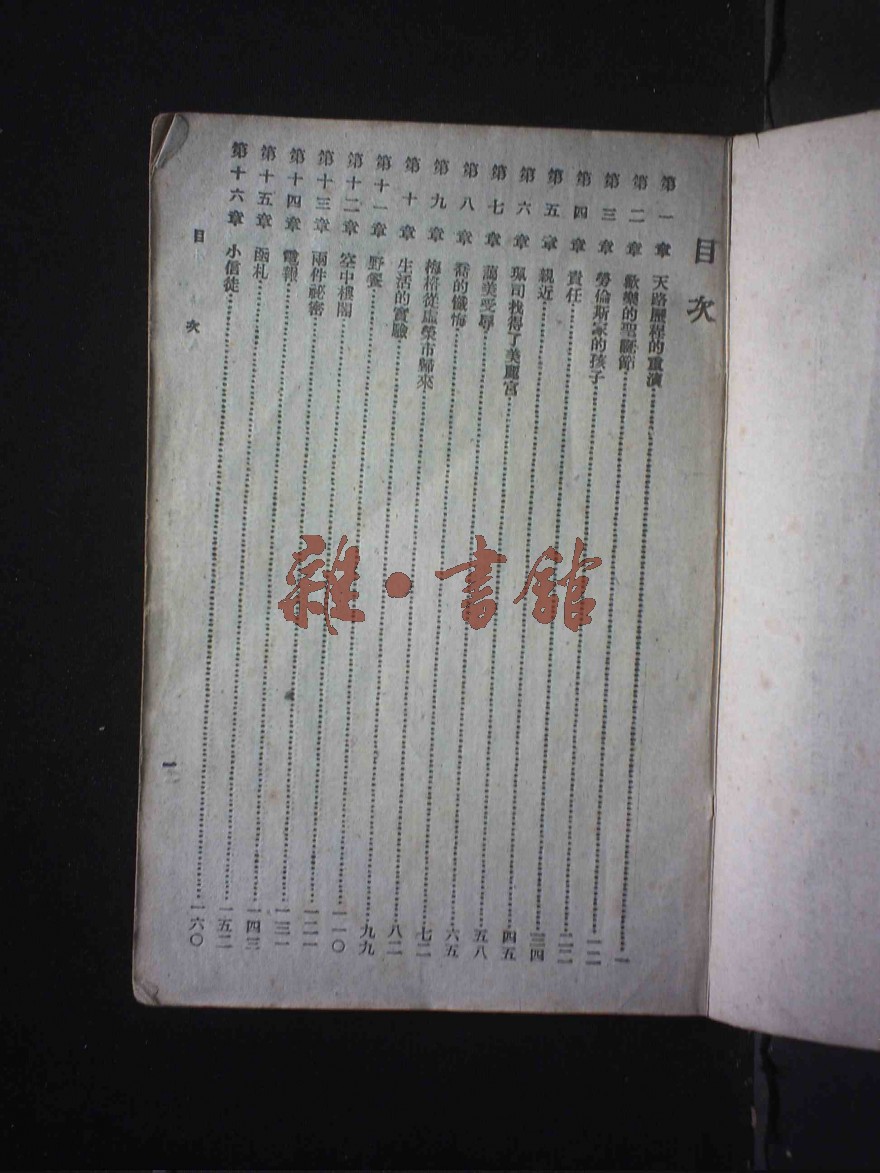 目次
第一章 天路歷程的重演……一
第二章 歡樂的聖誕節……一二
第三章 勞倫斯家的孩子……二二
第四章 責任……三四
第五章 親近……四五
第六章 珮司找得了美麗宮……五八
第七章 藹美受辱……六五
第八章 喬的懺悔……七二
第九章 梅格從虛榮市歸來……八二
第十章 生活的實驗……九九
第十一章 野餐……一一〇
第十二章 空中樓閣……一二一
第十三章 兩件祕密……一三一
第十四章 電報……一四三
第十五章 函札……一五二
第十六章 小信徒……一六〇
目次
一
雜·書館